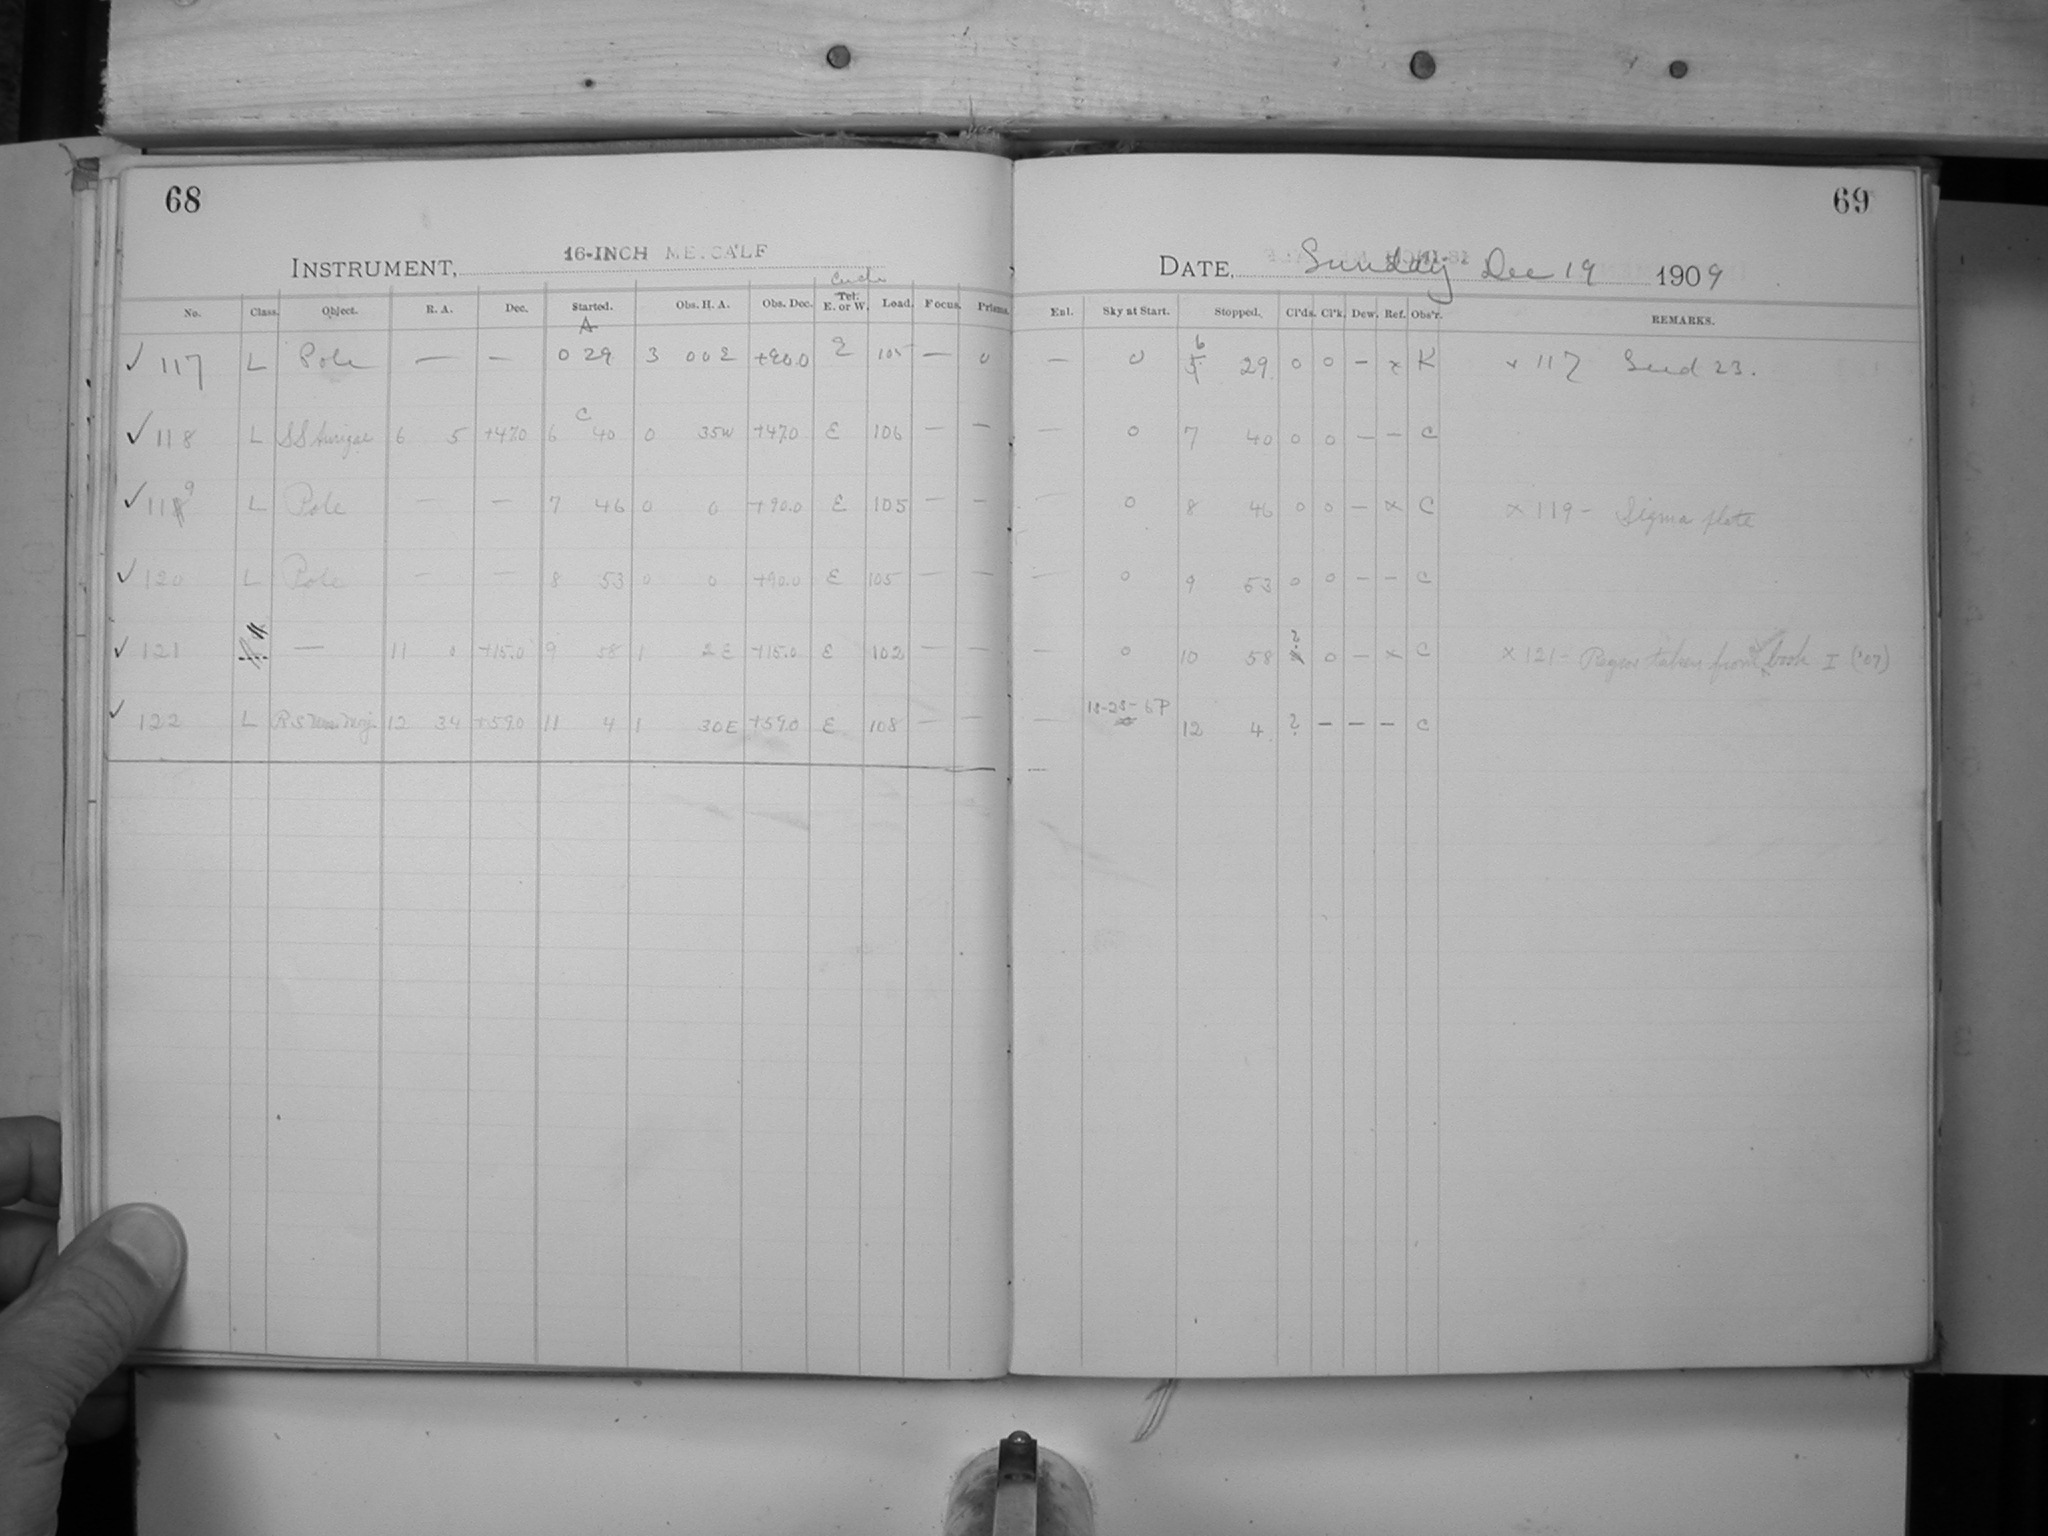 68
INSTRUMENT, 16-INCH METCALF
No. Class. Object. R. A. Dec. Started. Obs. H. A. Obs. Dec. Tel. E. or W. Load. Focus. Prisms.
A
✓ 117 L Pole — — 0 29 3 00 E +90.0 E 105 — 0
C
✓ 118 L SS Aurigae 6 5 +47.0 6 40 0 35W +47.0 E 106 — —
✓ 119 L Pole — — 7 46 0 0 +90.0 E 105 — —
✓ 120 L Pole — — 8 53 0 0 +90.0 E 105 — —
✓ 121 — 11 0 +15.0 9 58 1 2 E +15.0 E 102 — —
✓ 122 L RS Urs Maj. 12 34 +59.0 11 4 1 30E +59.0 E 108 — —
69
DATE, Sunday Dec 19 1909
Enl. Sky at Start. Stopped. Cl'ds. Cl'k. Dew. Ref. Obs'r. REMARKS.
— 0 6 29 0 0 — x K x 117 Seed 23.
— 0 7 40 0 0 — — C
— 0 8 46 0 0 — x C x 119 - Sigma plate
— 0 9 53 0 0 — — C
0 10 58 ? 0 — x C x 121 - Region taken from book I ('07)
— 12 4 ? — — — C